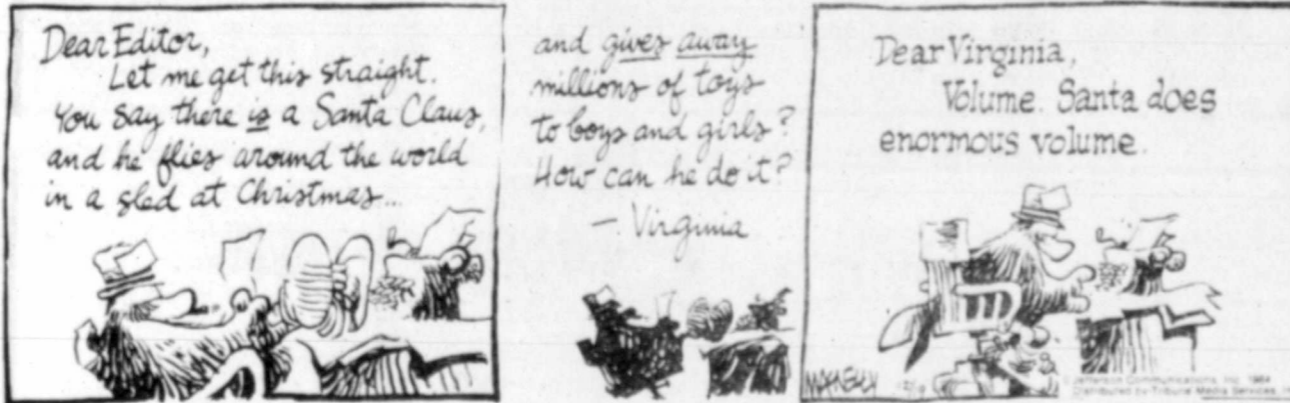 Dear Editor,
Let me get this straight.
You say there is a Santa Claus,
and he flies around the world
in a sled at Christmas...
and gives away
millions of toys
to boys and girls?
How can he do it?
— Virginia
Dear Virginia,
Volume. Santa does
enormous volume.
MACNELLY
© Jefferson Communications, Inc. 1984
Distributed by Tribune Media Services,